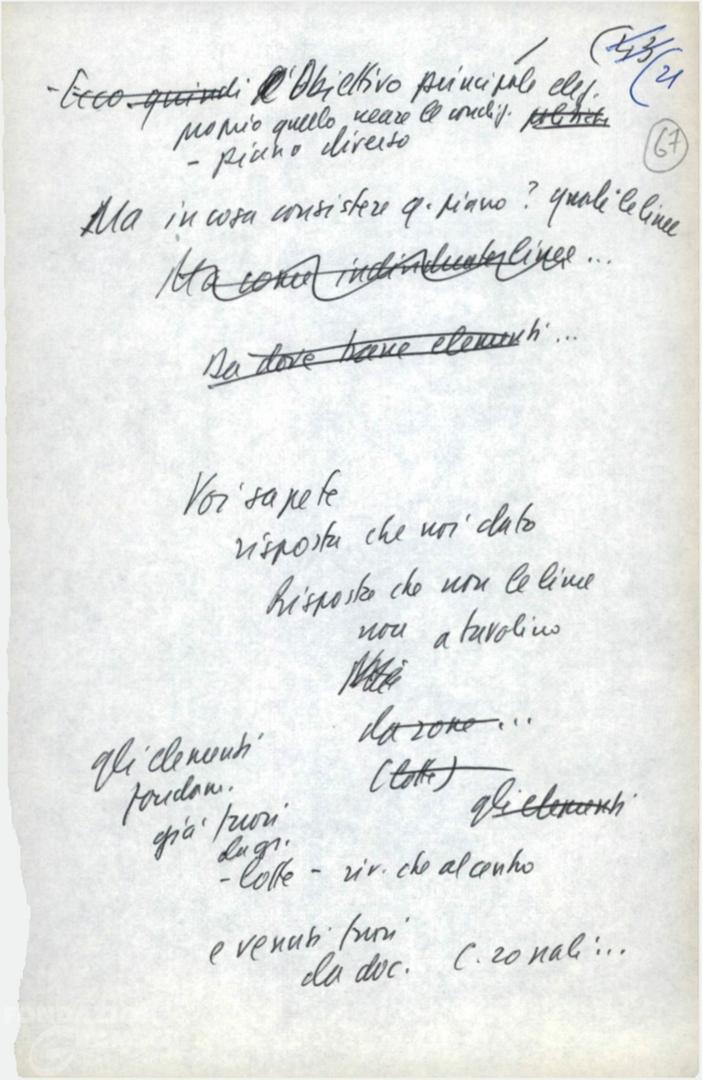 (21
67
- Ecco quindi l'Obiettivo principale
proprio quello creare le condiz. politiche
- piano diverso
Ma in cosa consistere q. piano? quali le linee
Ma come individuate linee ...
Da dove trarre elementi ...
Voi sapete
risposta che noi dato
Risposta che non le linee
non a tavolino
da zone ...
(lotte)
gli elementi
gli elementi
fondam.
già fuori
da gr.
- lotte - riv. che al centro
e venuti fuori
da doc. C. zonali ...